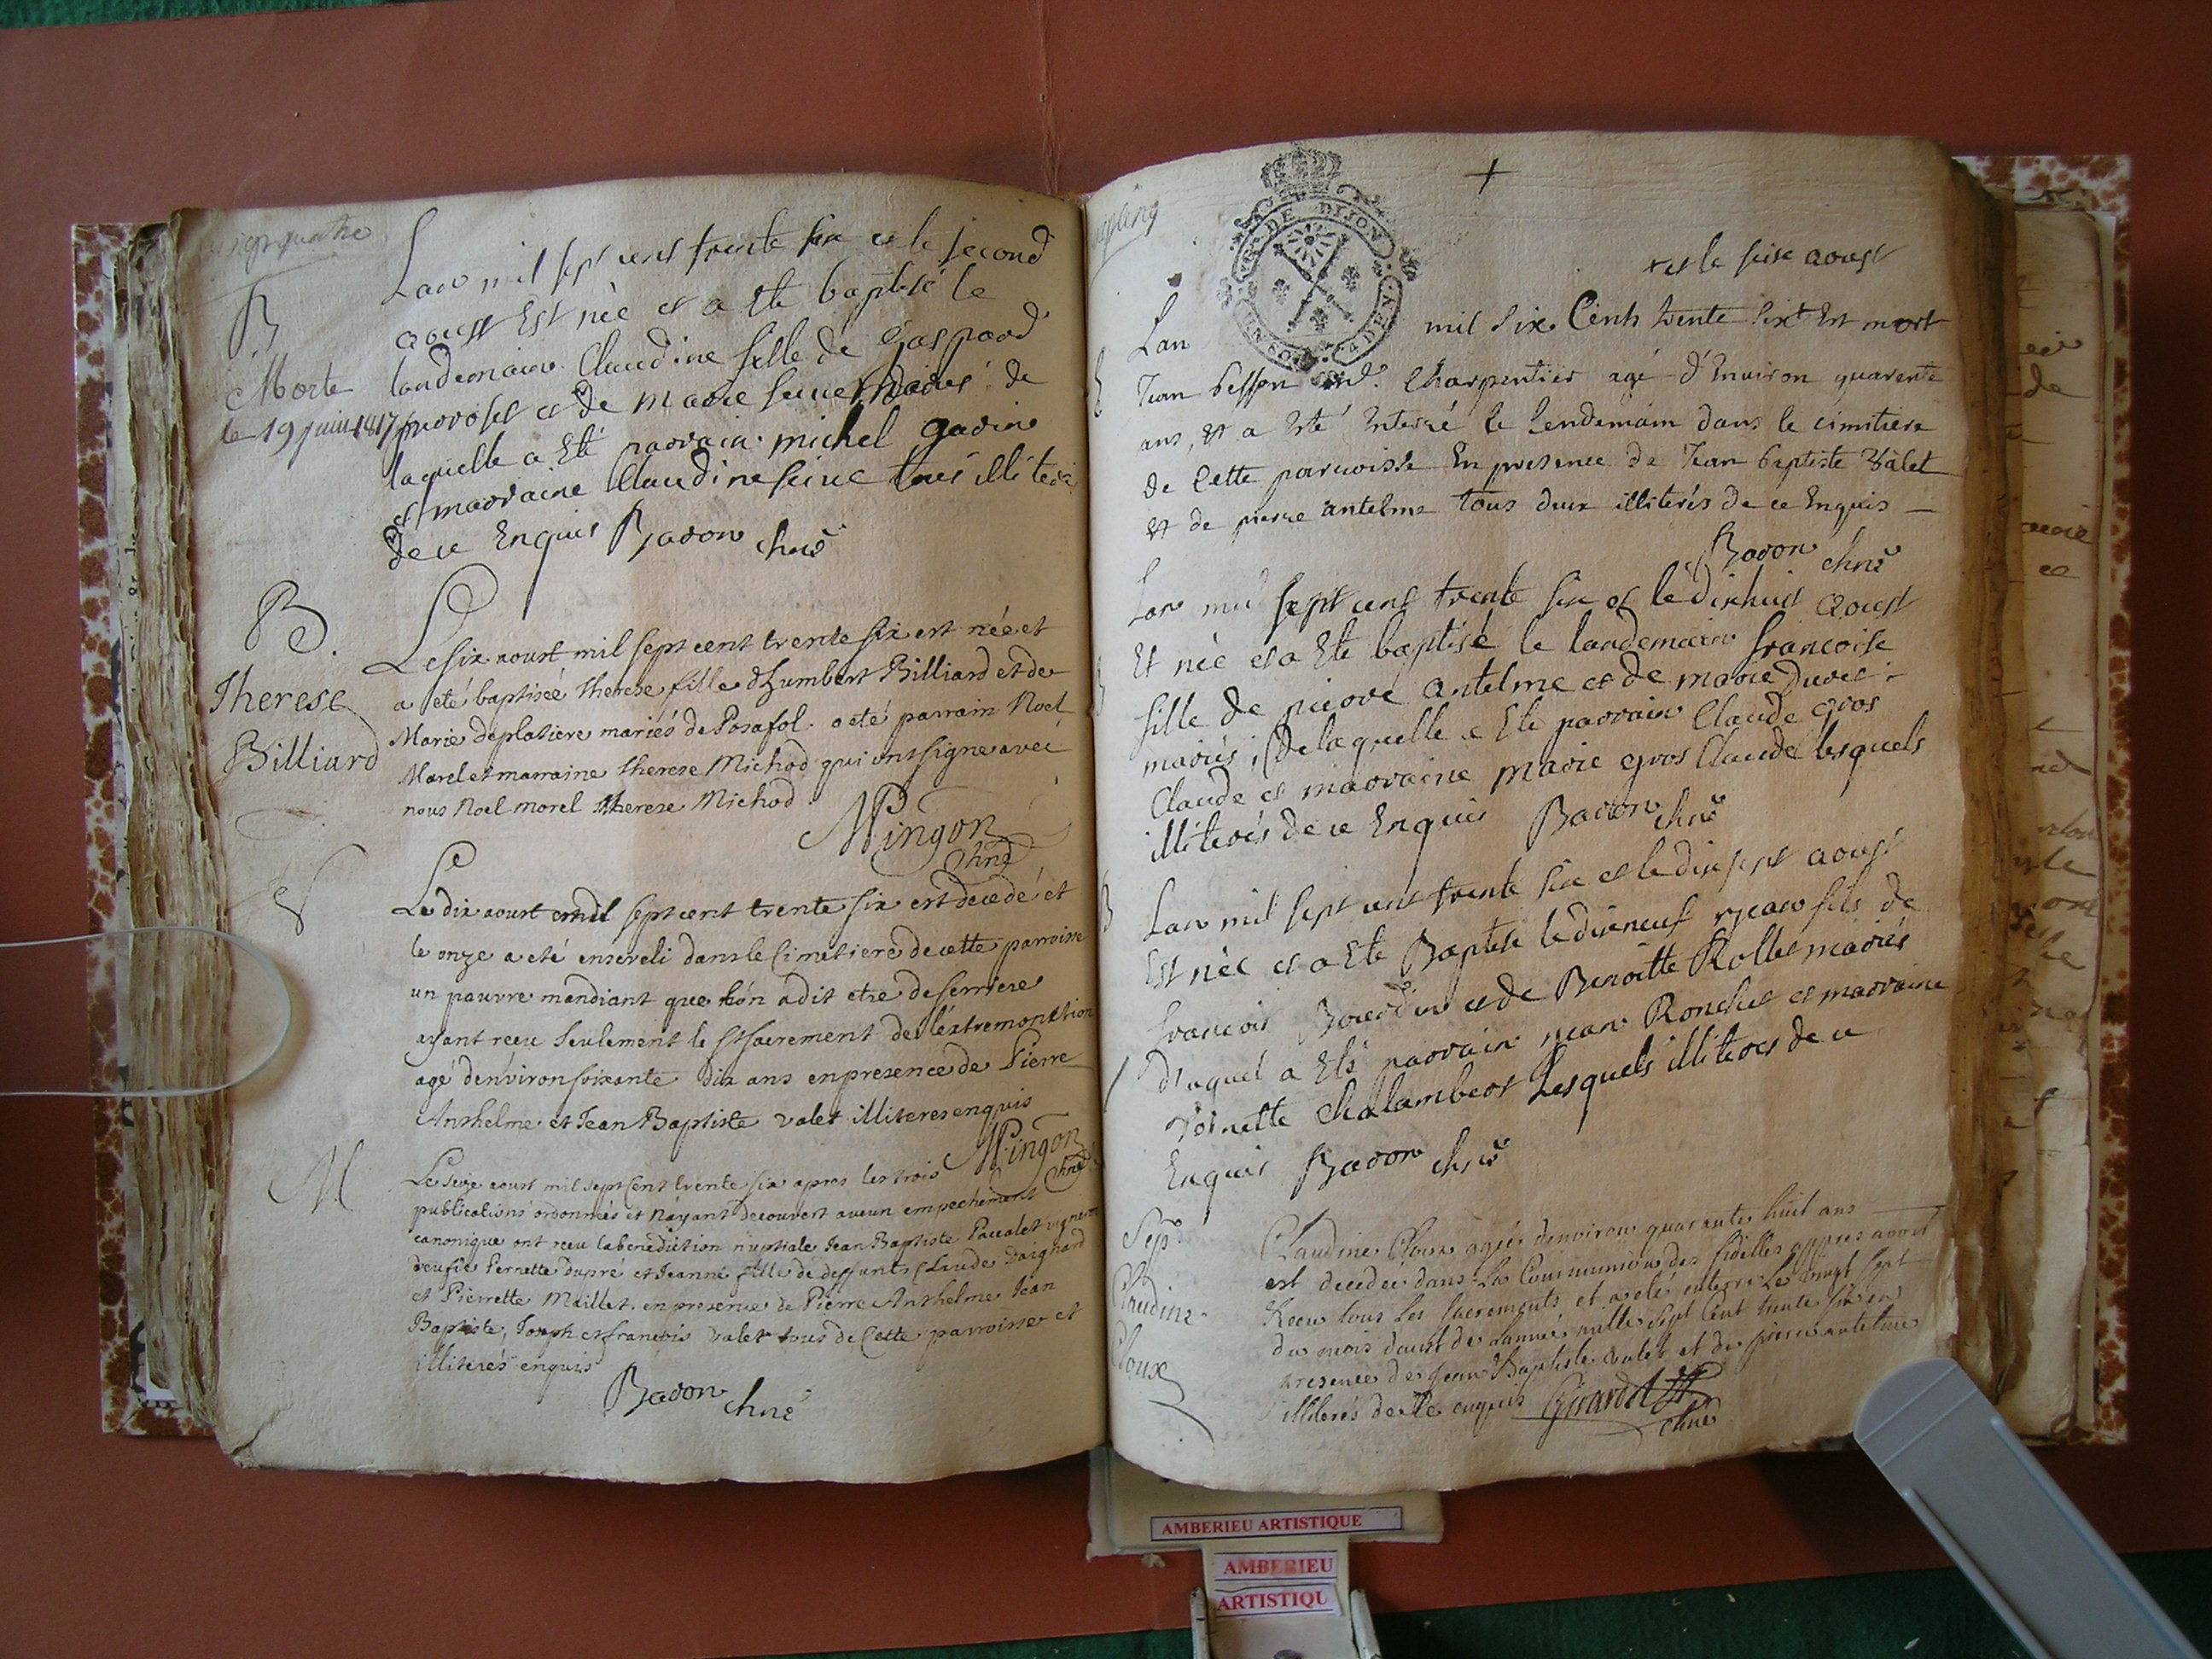 B
Morte
le 19 juin 1817
Lan mil sept cens trente six et le second
aoust Est née et a Ete baptisé le
landemain Claudine fille de Gaspard
provost et de marie seive mariés de
laquelle a Eté parrain michel gavin
et marraine Claudine seive tous illiteré
de ce Enquis Baron chne
B.
Therese
Billiard
Le six aoust mil sept cent trente six est née et
a eté baptiseé therese fille d'humbert Billiard et de
Marie deplatiere mariés de Posafol. a eté parrain Noel
Morel et marraine therese Michod qui ont signe avec
nous Noel morel therese Michod.
Mingon
chne
Le dix aoust mil sept cent trente six est decedé et
le onze a eté enseveli dans le Cimetiere de cette parroisse
un pauvre mandiant que l'on a dit etre de serriere
ayant reçu seulement le st sacrement de l'extremontion
agé d'environ soixante dix ans en presence de Pierre
Anthelme et Jean Baptiste valet illiteres enquis
Mingon
chne
M
Le seze aoust mil sept Cent trente six apres les trois
publications ordonnées et n'ayant decouvert aucun empechement
canonique ont reçu la benediction nuptiale Jean Baptiste Pacalet vigneron
veuf de Pernette dupré et Jeanne fille de deffunts Claude
et Pierrette Maillet. en presence de Pierre Anthelme Jean
Baptiste, Joseph et francois valet tous de Cette parroisse et
illiterés enquis
Baron chne
+
+ et le seise aoust
Lan mil six Cents trente six Est mort
Jean besson charpentier agé d'Environ quarente
ans, et a Eté Enterré le Lendemain dans le cimitiere
de Cette parroisse En presence de Jean baptiste valet
et de pierre antelme tous deux illiterés de ce Enquis —
Baron chne
Lan mil sept cens trente six et le dixhuit aoust
Et née et a Ete baptisé le landemain francoise
fille de pierre antelme et de marie
mariés; de laquelle a Ete parrain Claude gros
Claude et marraine marie gros Claude lesquels
illiterés de ce Enquis Baron chne
B
Lan mil sept cens trente six et le dix sept aoust
Est née et a Ete Baptise le dixneuf jean fils de
francois Bourdin et de Benoitte Rollet mariés
duquel a Eté parrain jean Ronchet et marraine
Toinette Chalambert Lesquels illiteres de ce
Enquis Baron chne
Sepre
Claudine
Cloux
Claudine Cloux agée d'environ quarante huit ans
est decedée dans La Communion des fidelles appres avoir
Receu tous Les sacrements et a eté enterré Le vingt sept
du mois d'aust de L'année mille sept Cent trente six en
presence de Jean Baptiste valet et de pierre antelme
illiterés de Ce enquis Girardet
chne
AMBERIEU ARTISTIQUE
AMBERIEU
ARTISTIQU